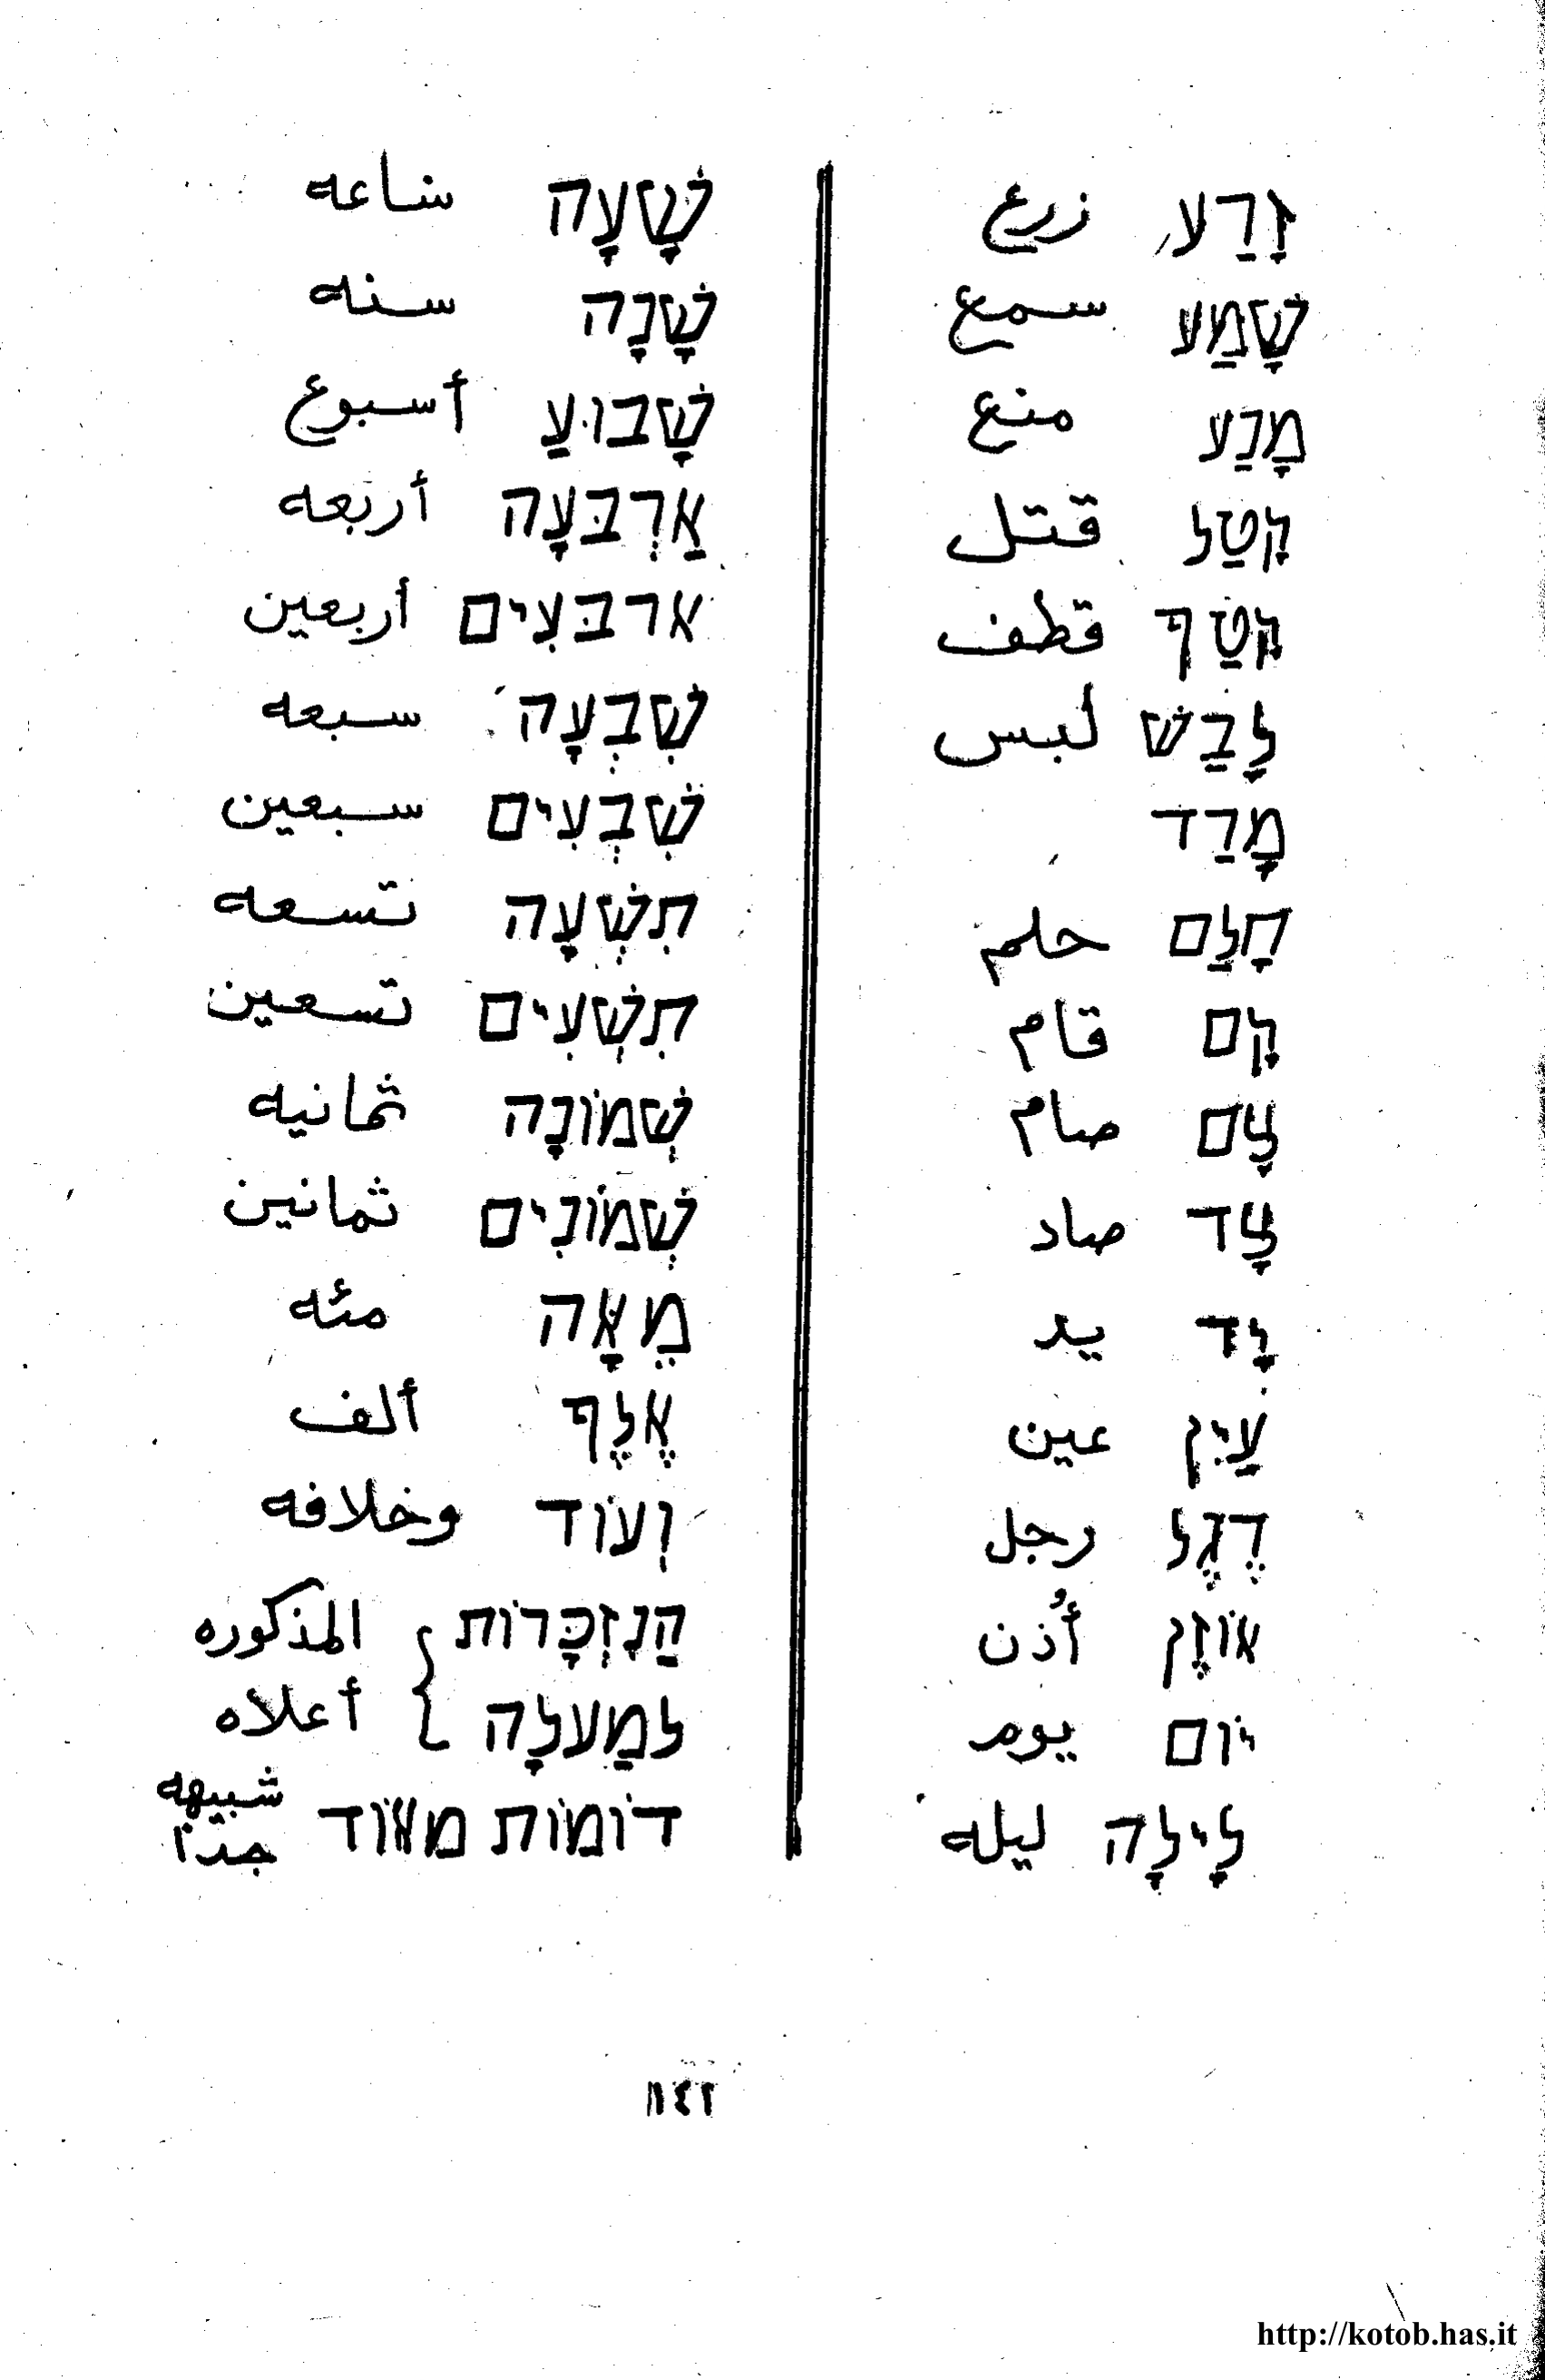 זָרַע زرع
שָׁמַע سمع
מָנַע منع
קָטַל قتل
קָטַף قطف
לָבַשׁ لبس
מָרַד
חָלַם حلم
קָם قام
צָם صام
צָד صاد
יָד يد
עַיִן عين
דֶגֶל رجل
אוֹזֶן أُذن
יוֹם يوم
לָילָה ليله
שָׁעָה ساعه
שָׁנָה سنه
שָׁבוּעַ أسبوع
אַרְבָּעָה أربعه
ארבּעִים أربعين
שִׁבְעָה سبعه
שִׁבְעִים سبعين
תִשְׁעָה تسعه
תִשְׁעִים تسعين
שְׁמוֹנָה ثمانيه
שְׁמוֹנִים ثمانين
מֵאָה مئه
אֶלֶף ألف
וְעוֹד وخلافه
הַנִזְכָּרוֹת } المذكوره
למַעלָה } أعلاه
דוֹמוֹת מאוֹד شبيهه جدًا
١٤٢
http://kotob.has.it